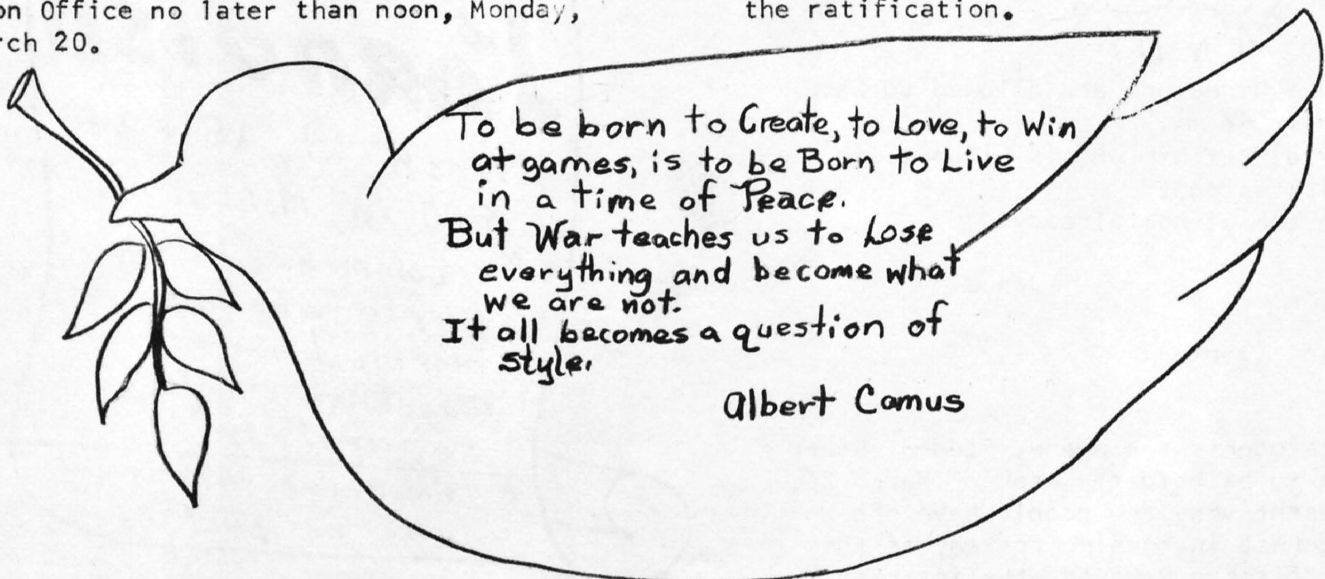 on Office no later than noon, Monday,
rch 20.
the ratification.
To be born to Create, to Love, to Win
at games, is to be Born to Live
in a time of Peace.
But War teaches us to Lose
everything and become what
we are not.
It all becomes a question of
style.
Albert Camus